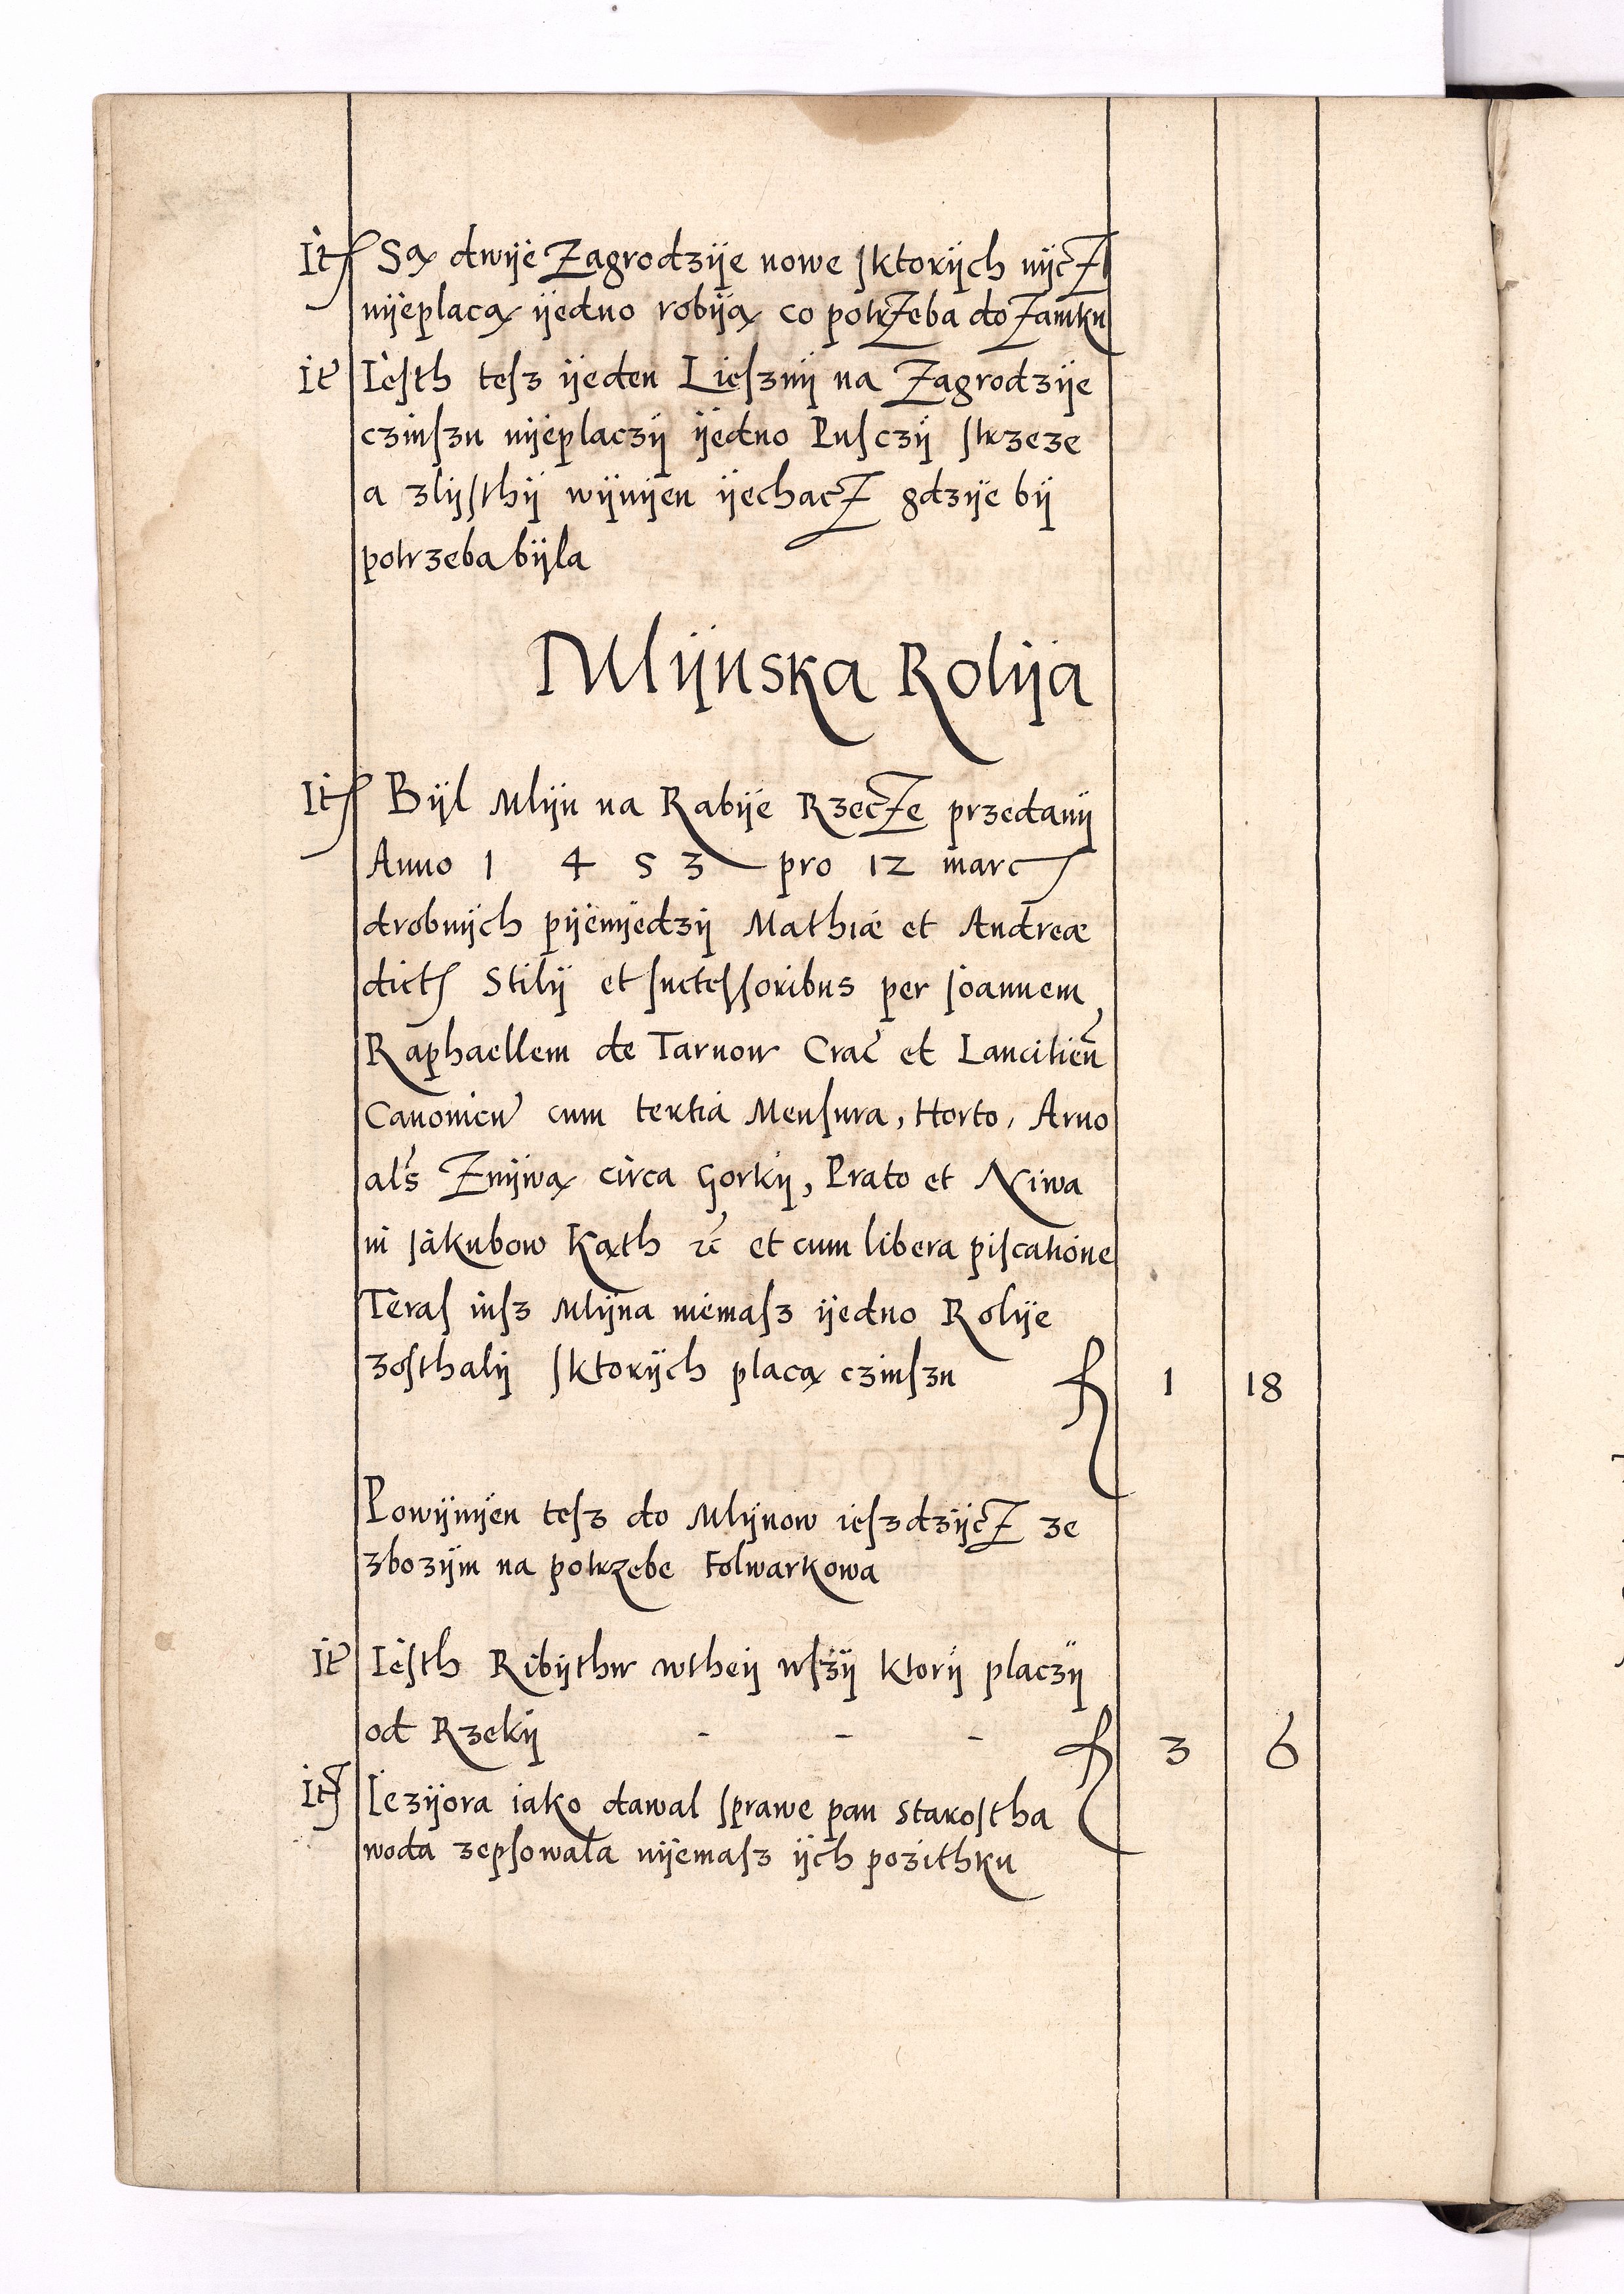 Itꝭ Są dwÿe Zagrodzÿe nowe sktorÿch nÿcZ
nÿeplacą ÿedno robÿą co potrZeba do Zamku
It Iesth tesz ÿeden Liesznÿ na Zagrodzÿe
czinszu nÿeplaczÿ ÿedno Pusczÿ strzeze
a zlÿsthÿ wÿnÿen ÿechacZ gdzÿe bÿ
potrzeba bÿla
Mlÿnska Rolÿa
Itꝭ Bÿl Mlÿn na Rabÿe RzecZe przedanÿ
Anno 1 4 5 3 pro 12 marcꝭ
drobnÿch pÿenÿedzÿ Mathiæ et Andreæ
dictꝭ Stilÿ et successoribus per Joannem
Raphaellem de Tarnow Crac̃ et Lancitien̄
Canonicu᷎ cum tertia Mensura, Horto, Aruo
als̃ Znÿwą circa Gorkÿ, Prato et Niwa
in Jakubow Kąth ⁊c̃ et cum libera piscatione
Teras insz Mlÿna niemasz ÿedno Rolÿe
zosthalÿ sktorÿch placą czinszu f 1 18
Powÿnÿen tesz do Mlÿnow ieszdzÿcZ ze
zbozÿm na potrzebe Folwarkowa
It Iesth Ribÿthw wtheÿ wszÿ ktorÿ placzÿ
od Rzekÿ - - - f 3 6
Itꝭ Jezÿora iako dawal sprawe pan Starostha
woda zepsowała nÿemasz ÿch pozithku